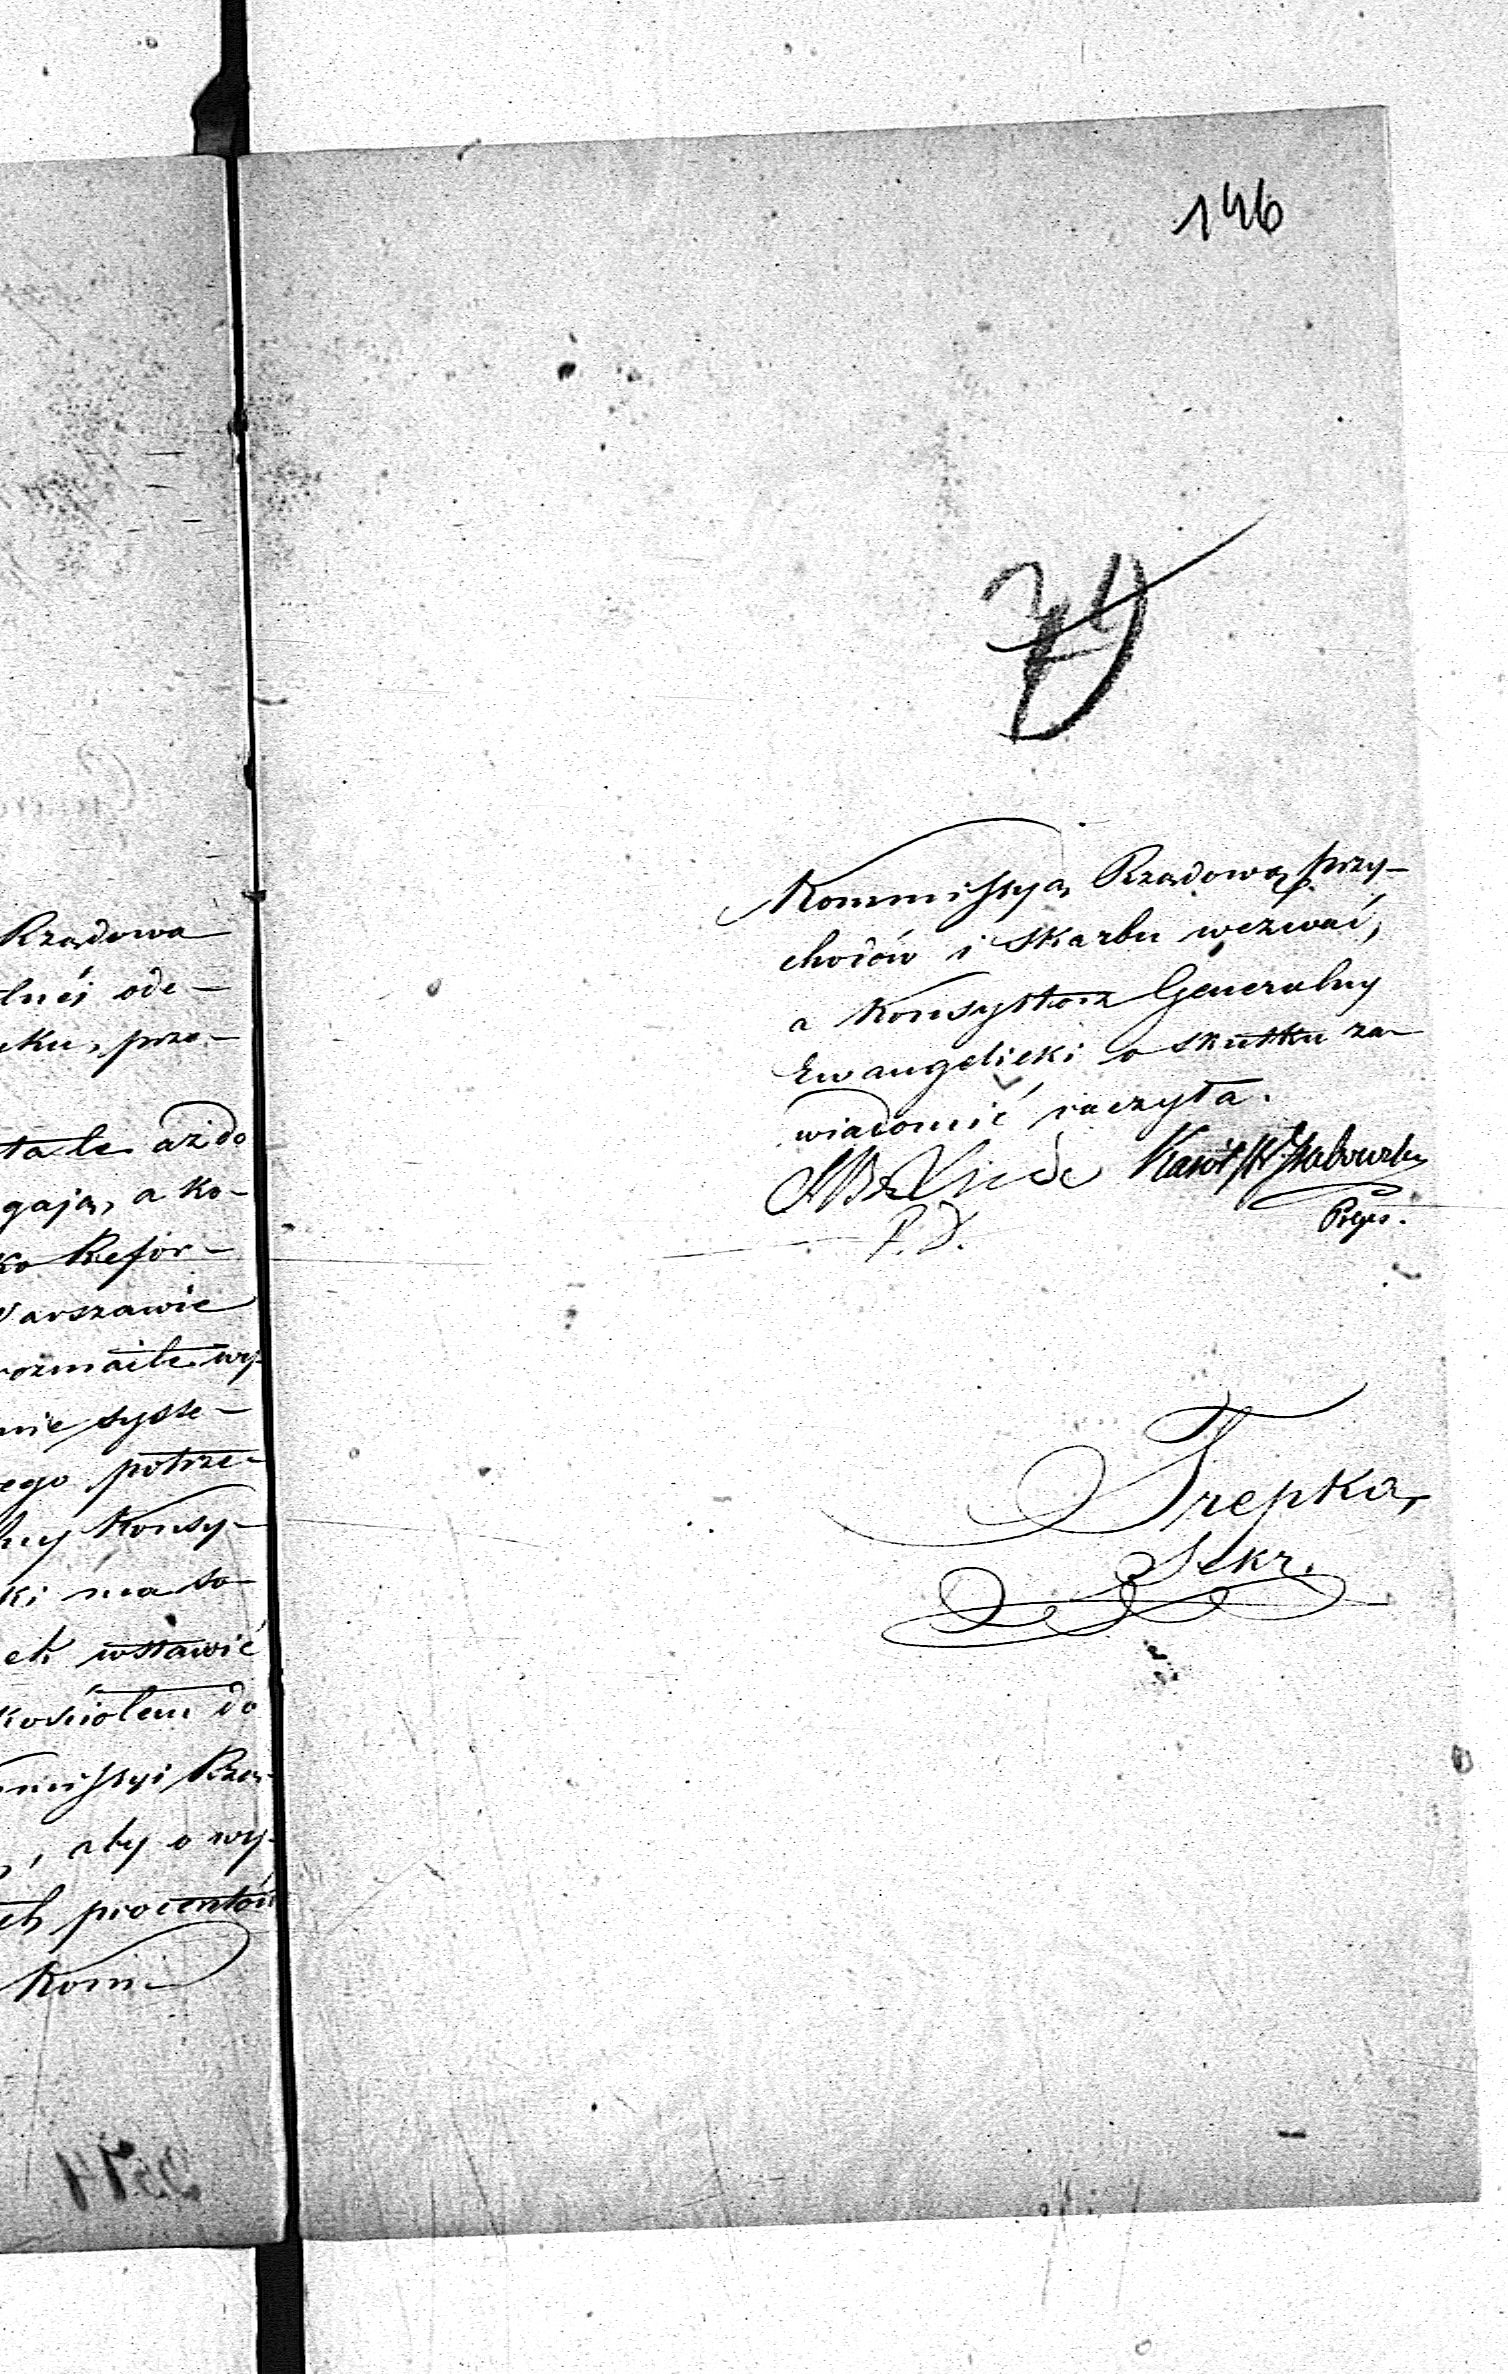 Rządowa
lnéj ode-
ku, prze-
tale aż do
gają, a ko-
ko Refor-
Warszawie
rozmaite wy-
nie syste-
ego potrze-
ny Konsy-
ki ma so-
ek wstawić
kościołem do
missyi Rzą-
, aby o wy-
ch procentów
Kom-
146
Kommissyą Rządową przy-
chodów i Skarbu wezwać,
a Konsystorz Generalny
Ewangelicki o skutku za-
wiadomić raczyła.
Karol
P.D. Prezes.
Trepka,
Sekr.